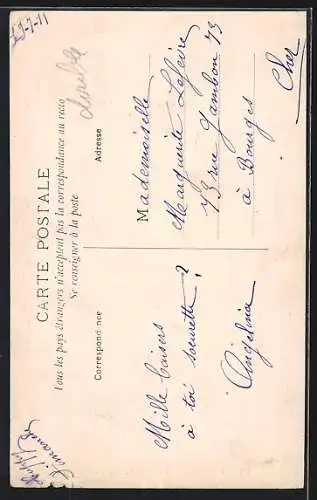 CARTE POSTALE
Tous les pays étrangers n'acceptent pas la correspondance au recto
Se renseigner à la poste
Correspondance
Adresse
double
Mille baisers
à toi soeurette
Angelina
Mademoiselle
Marguerite Lefèvre
73 rue Gambon 73
à Bourges
Cher